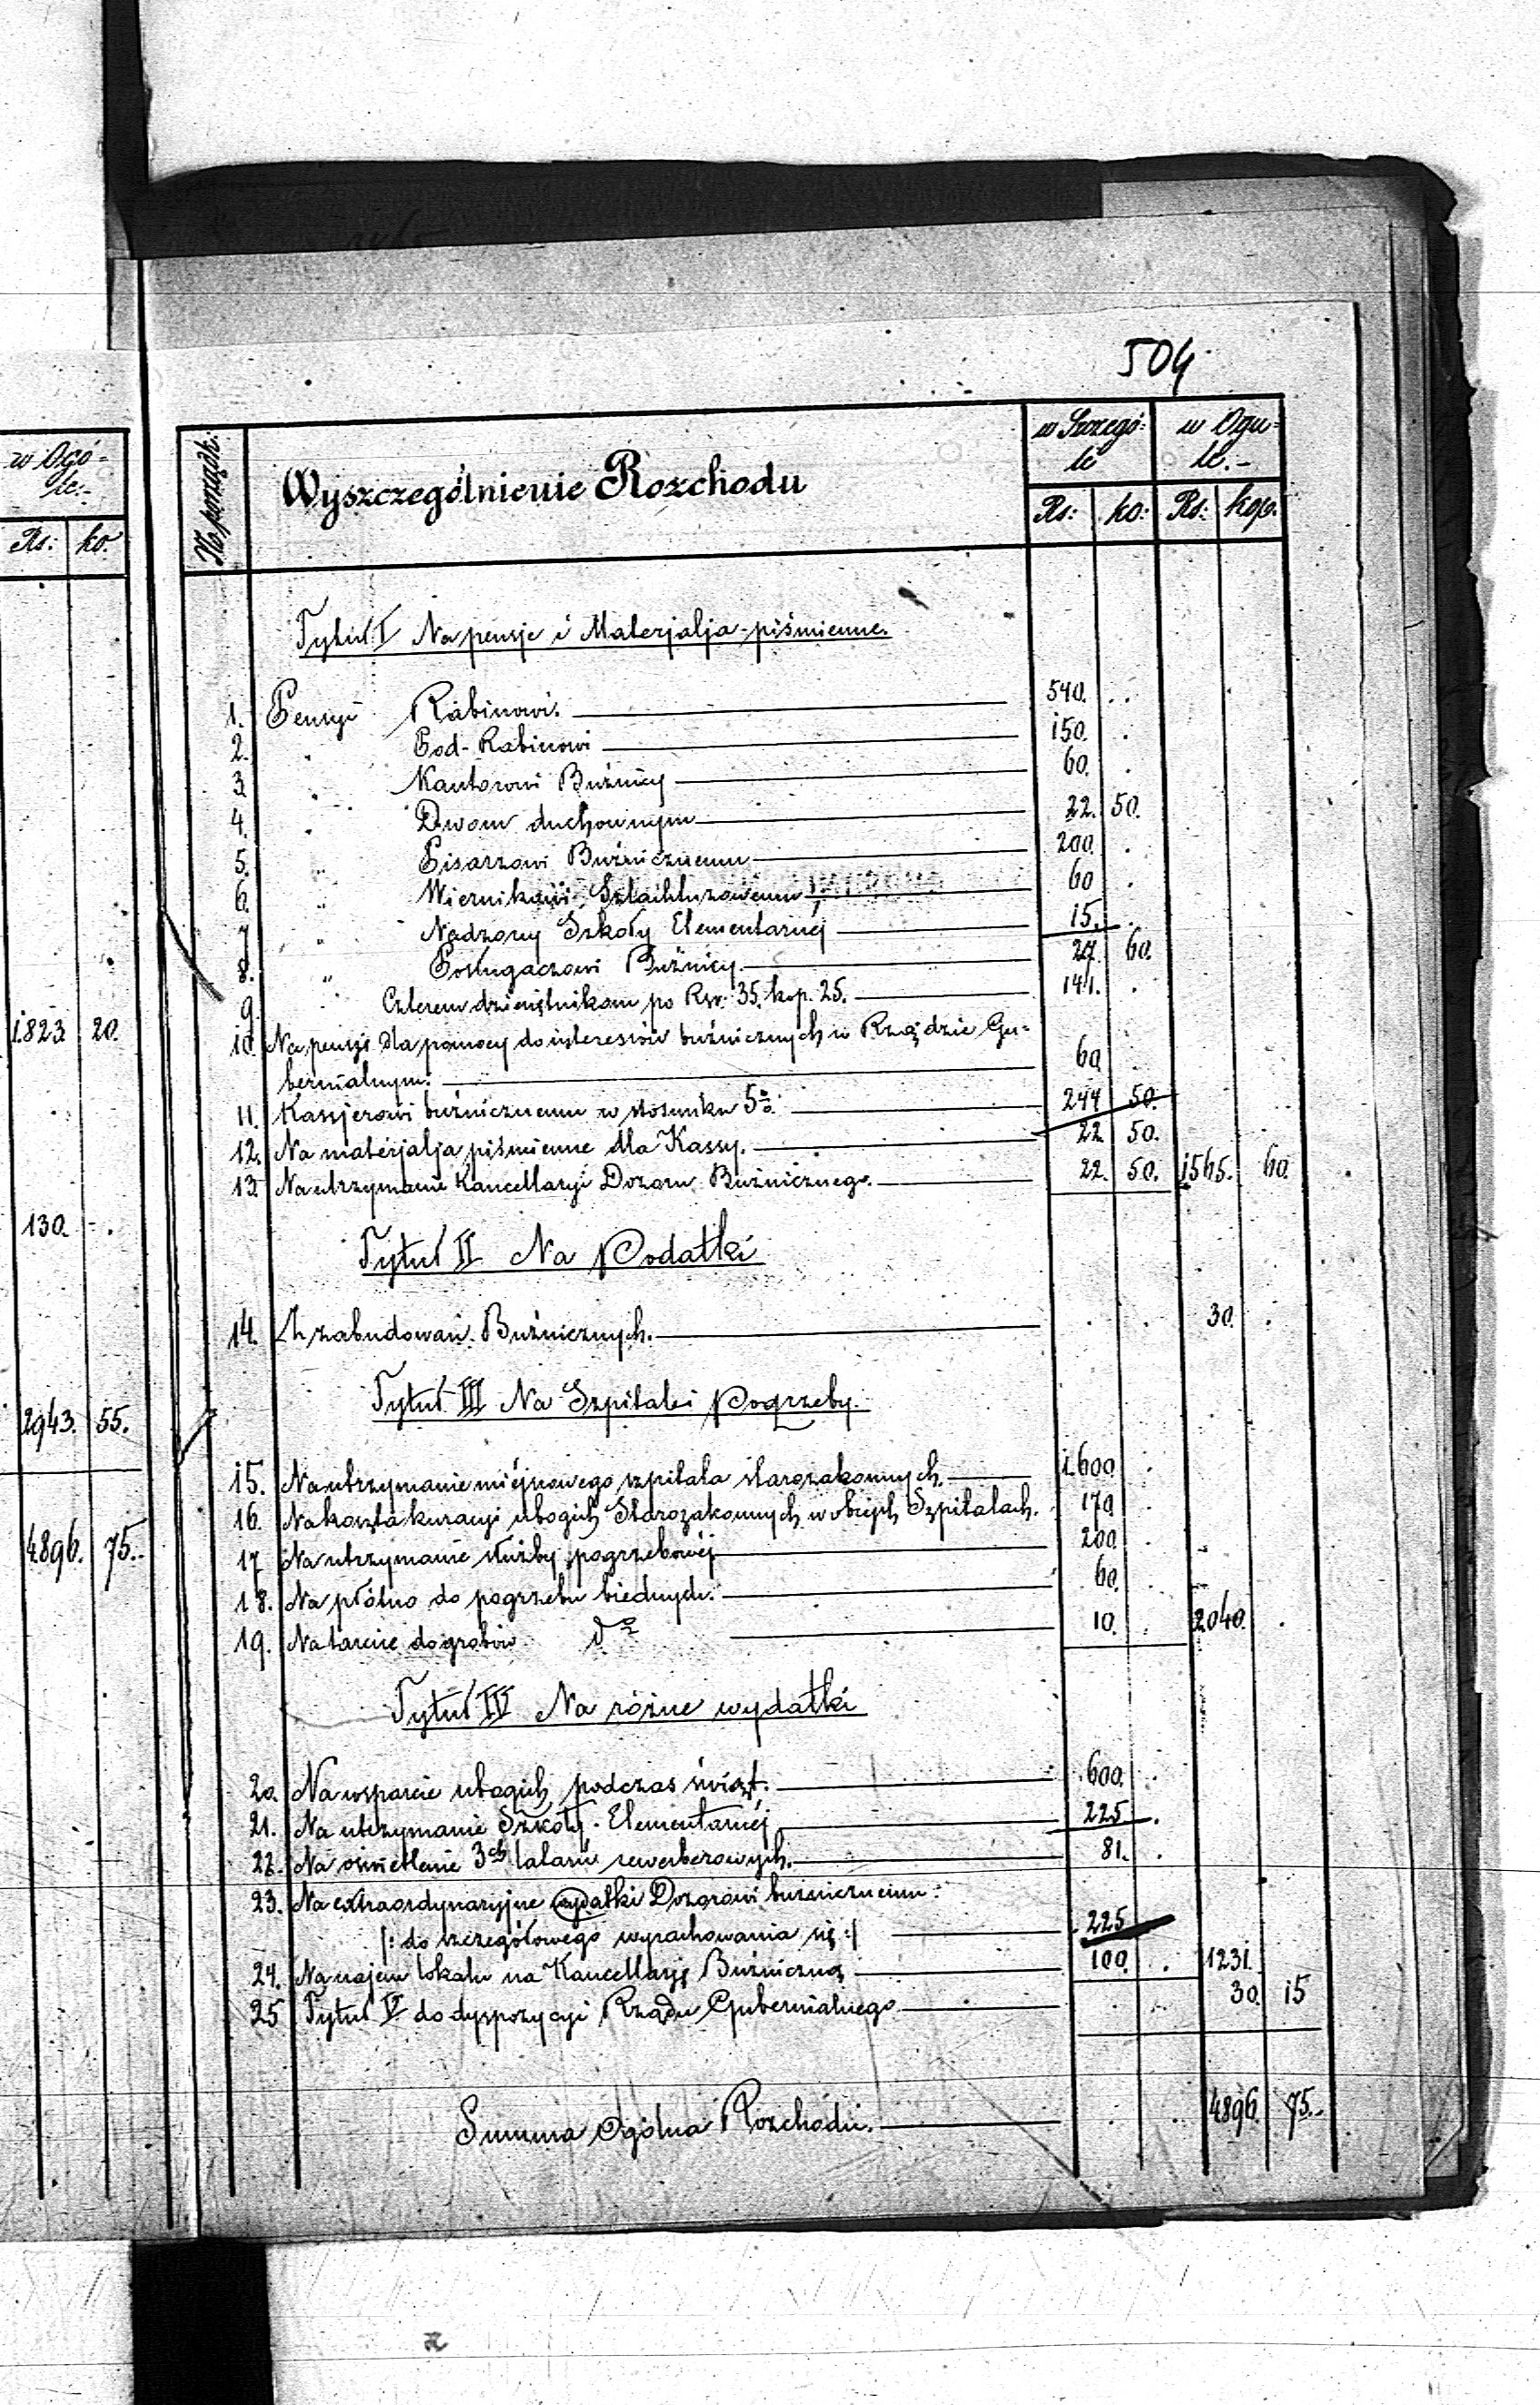 504
w Ogó-
le.-
Rs: ko.
1823 20.
130. - .
2943. 55.
4896. 75.-
№ porządk:
Wyszczególnienie Rozchodu
w Szczegó-
le
w Ogu-
le.-
Rs: ko: Rs: kop.
Tytuł I Na pensje i Materjalja piśmienne.
1. Pensyi Rabinowi. 540. . .
2. " Pod-Rabinowi 150. .
3. " Kantorowi Buźnicy 60. .
4. " Dwom duchownym 22. 50.
5. " Pisarzowi Buźnicznemu 200. .
6. " Wiernikowi Szlachtuzowemu 60 .
7 " Nadzorcy Szkoły Elementarnéj 15. .
8. " Posługaczowi Buźnicy. 27. 60.
9. " Czterem dziesiętnikom po Rsr. 35. kop. 25. 141. .
10. Na pensji dla pomocy do interesów buźnicznych w Rządzie Gu-
bernialnym. 60.
11. Kassjerowi buźnicznemu w stosunku 5%. 244 50.
12. Na materjalja piśmienne dla Kassy. 22. 50.
13. Na utrzymanie Kancellaryi Dozoru Buźnicznego. 22. 50. 1565. 60.
Tytuł II Na Podatki
14. Z zabudowań Buźnicznych. . . 30. .
Tytuł III Na Szpitale i Pogrzeby.
15. Na utrzymanie miéjscowego szpitala starozakonnych. 1600 .
16. Na koszta kuracyi ubogich Starozakonnych w obcych Szpitalach. 170 .
17 Na utrzymanie służby pogrzebowéj 200. .
18. Na płótno do pogrzebu biednych. 60. .
19. Na tarcie do grobów do 10. . 2040. .
Tytuł IV Na różne wydatki
20. Na wsparcie ubogich podczas świąt. 600. .
21. Na utrzymanie Szkoły Elementarnéj 225 .
22. Na oświetlenie 3ch latarń rewerberowych. 81. .
23. Na extraordynaryjne wydatki Dozorowi buźnicznemu:
/: do szczegółowego wyrachowania się :/ 225
24. Na najem lokalu na Kancellarję Buźniczną 100. . 1231.
25 Tytuł V do dyspozycyi Rządu Gubernialnego . . 30. 15
Summa Ogólna Rozchodu. . . 4896. 75.-